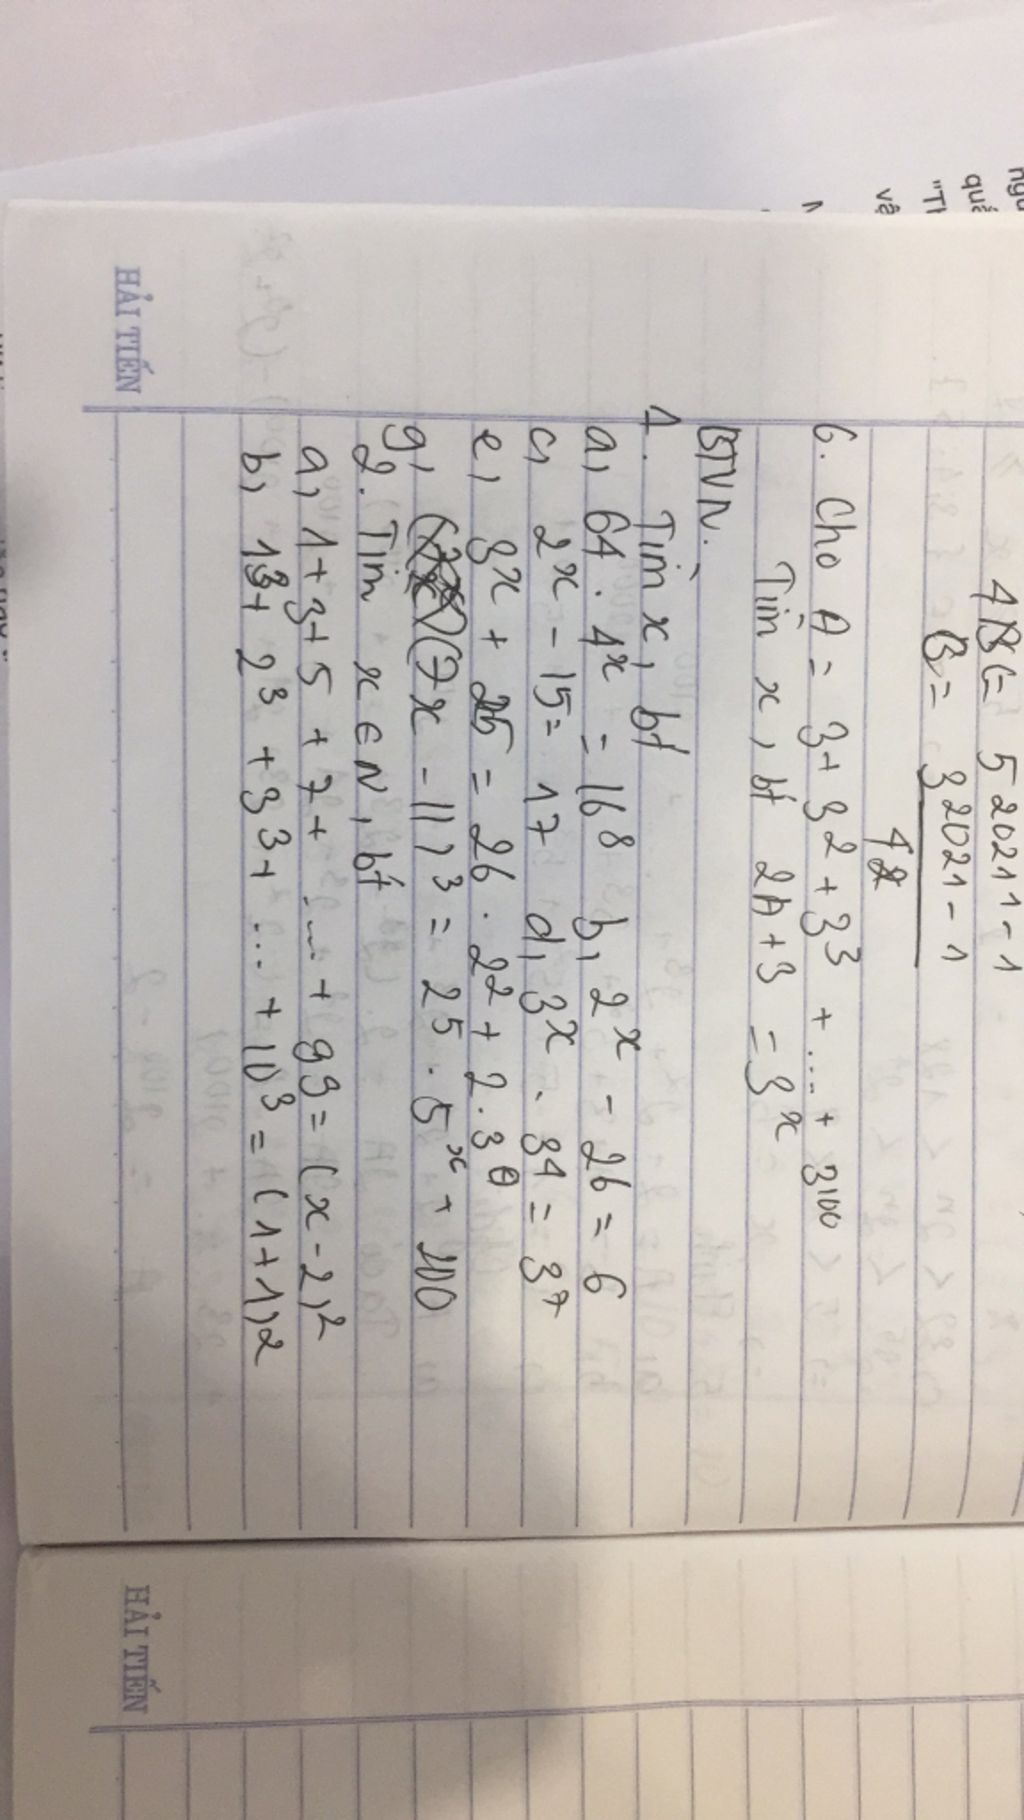 4B = 5 2021 - 1
B = 3 2021 - 1
4
6. Cho A = 3 + 3² + 3³ + .... + 3¹⁰⁰
Tìm x, bt 2A + 3 = 3ˣ
BTVN.
1. Tìm x, bt
a, 64 . 4ˣ = 16⁸ b, 2ˣ - 26 = 6
c, 2ˣ - 15 = 17 d, 3ˣ . 3⁴ = 3⁷
e, 8ˣ + 25 = 26 . 2² + 2 . 3⁰
g, (7x - 11)³ = 2⁵ . 5ˣ + 200
2. Tìm x ∈ N, bt
a, 1 + 3 + 5 + 7 + .... + 99 = (x - 2)²
b, 1³ + 2³ + 3³ + ... + 10³ = (1 + 1)2
HẢI TIẾN
HẢI TIẾN
quẻ
vệ